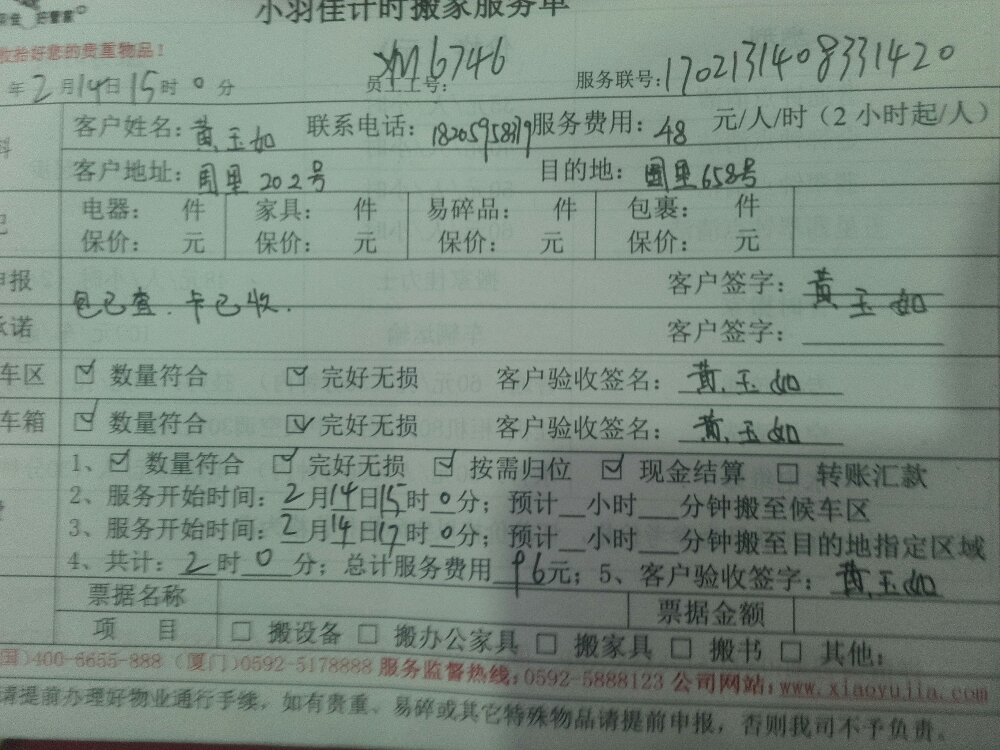 小羽佳计时搬家服务单
收拾好您的贵重物品！
年2月14日15时0分 员工工号：XM6746 服务联号：1702131408331420
客户姓名：黄玉如 联系电话：18205958379 服务费用：48 元/人/时（2小时起/人）
客户地址：围里202号 目的地：围里658号
电器： 件 家具： 件 易碎品： 件 包裹： 件
保价： 元 保价： 元 保价： 元 保价： 元
申报 客户签字：黄玉如
包已查．卡已收．
承诺 客户签字：
车区 ☑ 数量符合 ☑ 完好无损 客户验收签名：黄玉如
车箱 ☑ 数量符合 ☑ 完好无损 客户验收签名：黄玉如
1、☑ 数量符合 ☑ 完好无损 ☑ 按需归位 ☑ 现金结算 □ 转账汇款
2、服务开始时间：2月14日15时0分；预计__小时___分钟搬至候车区
3、服务开始时间：2月14日17时0分；预计__小时___分钟搬至目的地指定区域
4、共计：2时0分；总计服务费用96元；5、客户验收签字：黄玉如
票据名称 票据金额
项 目 □ 搬设备 □ 搬办公家具 □ 搬家具 □ 搬书 □ 其他：
国)400-6655-888（厦门)0592-5178888 服务监督热线：0592-5888123 公司网站：www.xiaoyujia.com
请提前办理好物业通行手续，如有贵重、易碎或其它特殊物品请提前申报，否则我司不予负责。